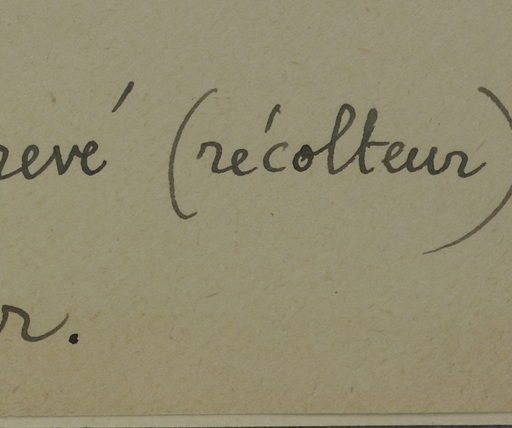 revé (récolteur)
r.